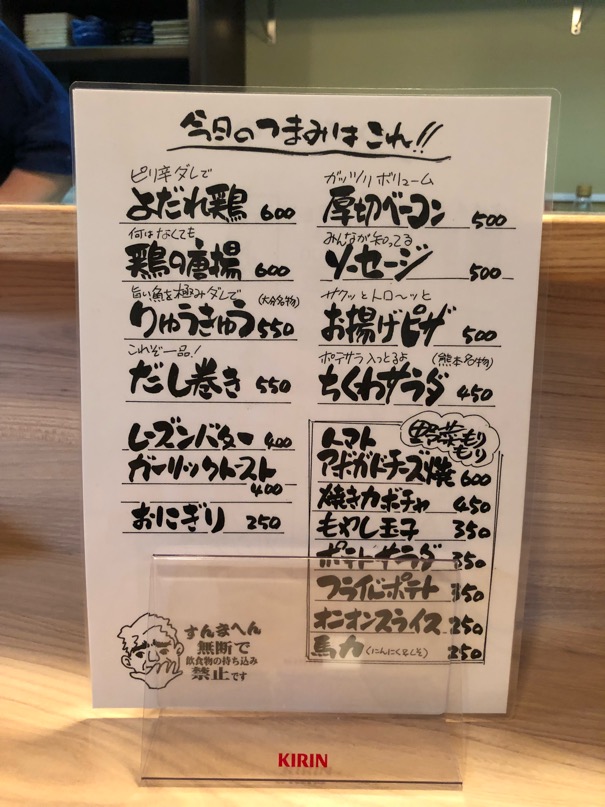 今日のつまみはこれ!!
ピリ辛ダレで
よだれ鶏 600
何はなくても
鶏の唐揚 600
旨い魚を極みダレで (大分名物)
りゅうきゅう 550
これぞ一品!
だし巻き 550
レーズンバター 400
ガーリックトースト
400
おにぎり 250
ガッツリボリューム
厚切ベーコン 500
みんなが知ってる
ソーセージ 500
サクッとトロ〜ッと
お揚げピザ 500
ポテサラ入っとるよ (熊本名物)
ちくわサラダ 450
野菜もり
もり
トマト
アボガドチーズ焼 600
焼きカボチャ 450
もやし玉子 350
ポテトサラダ 350
フライドポテト 350
オニオンスライス 250
馬力 (にんにく&しそ) 250
すんまへん
無断で
飲食物の持ち込み
禁止です
KIRIN